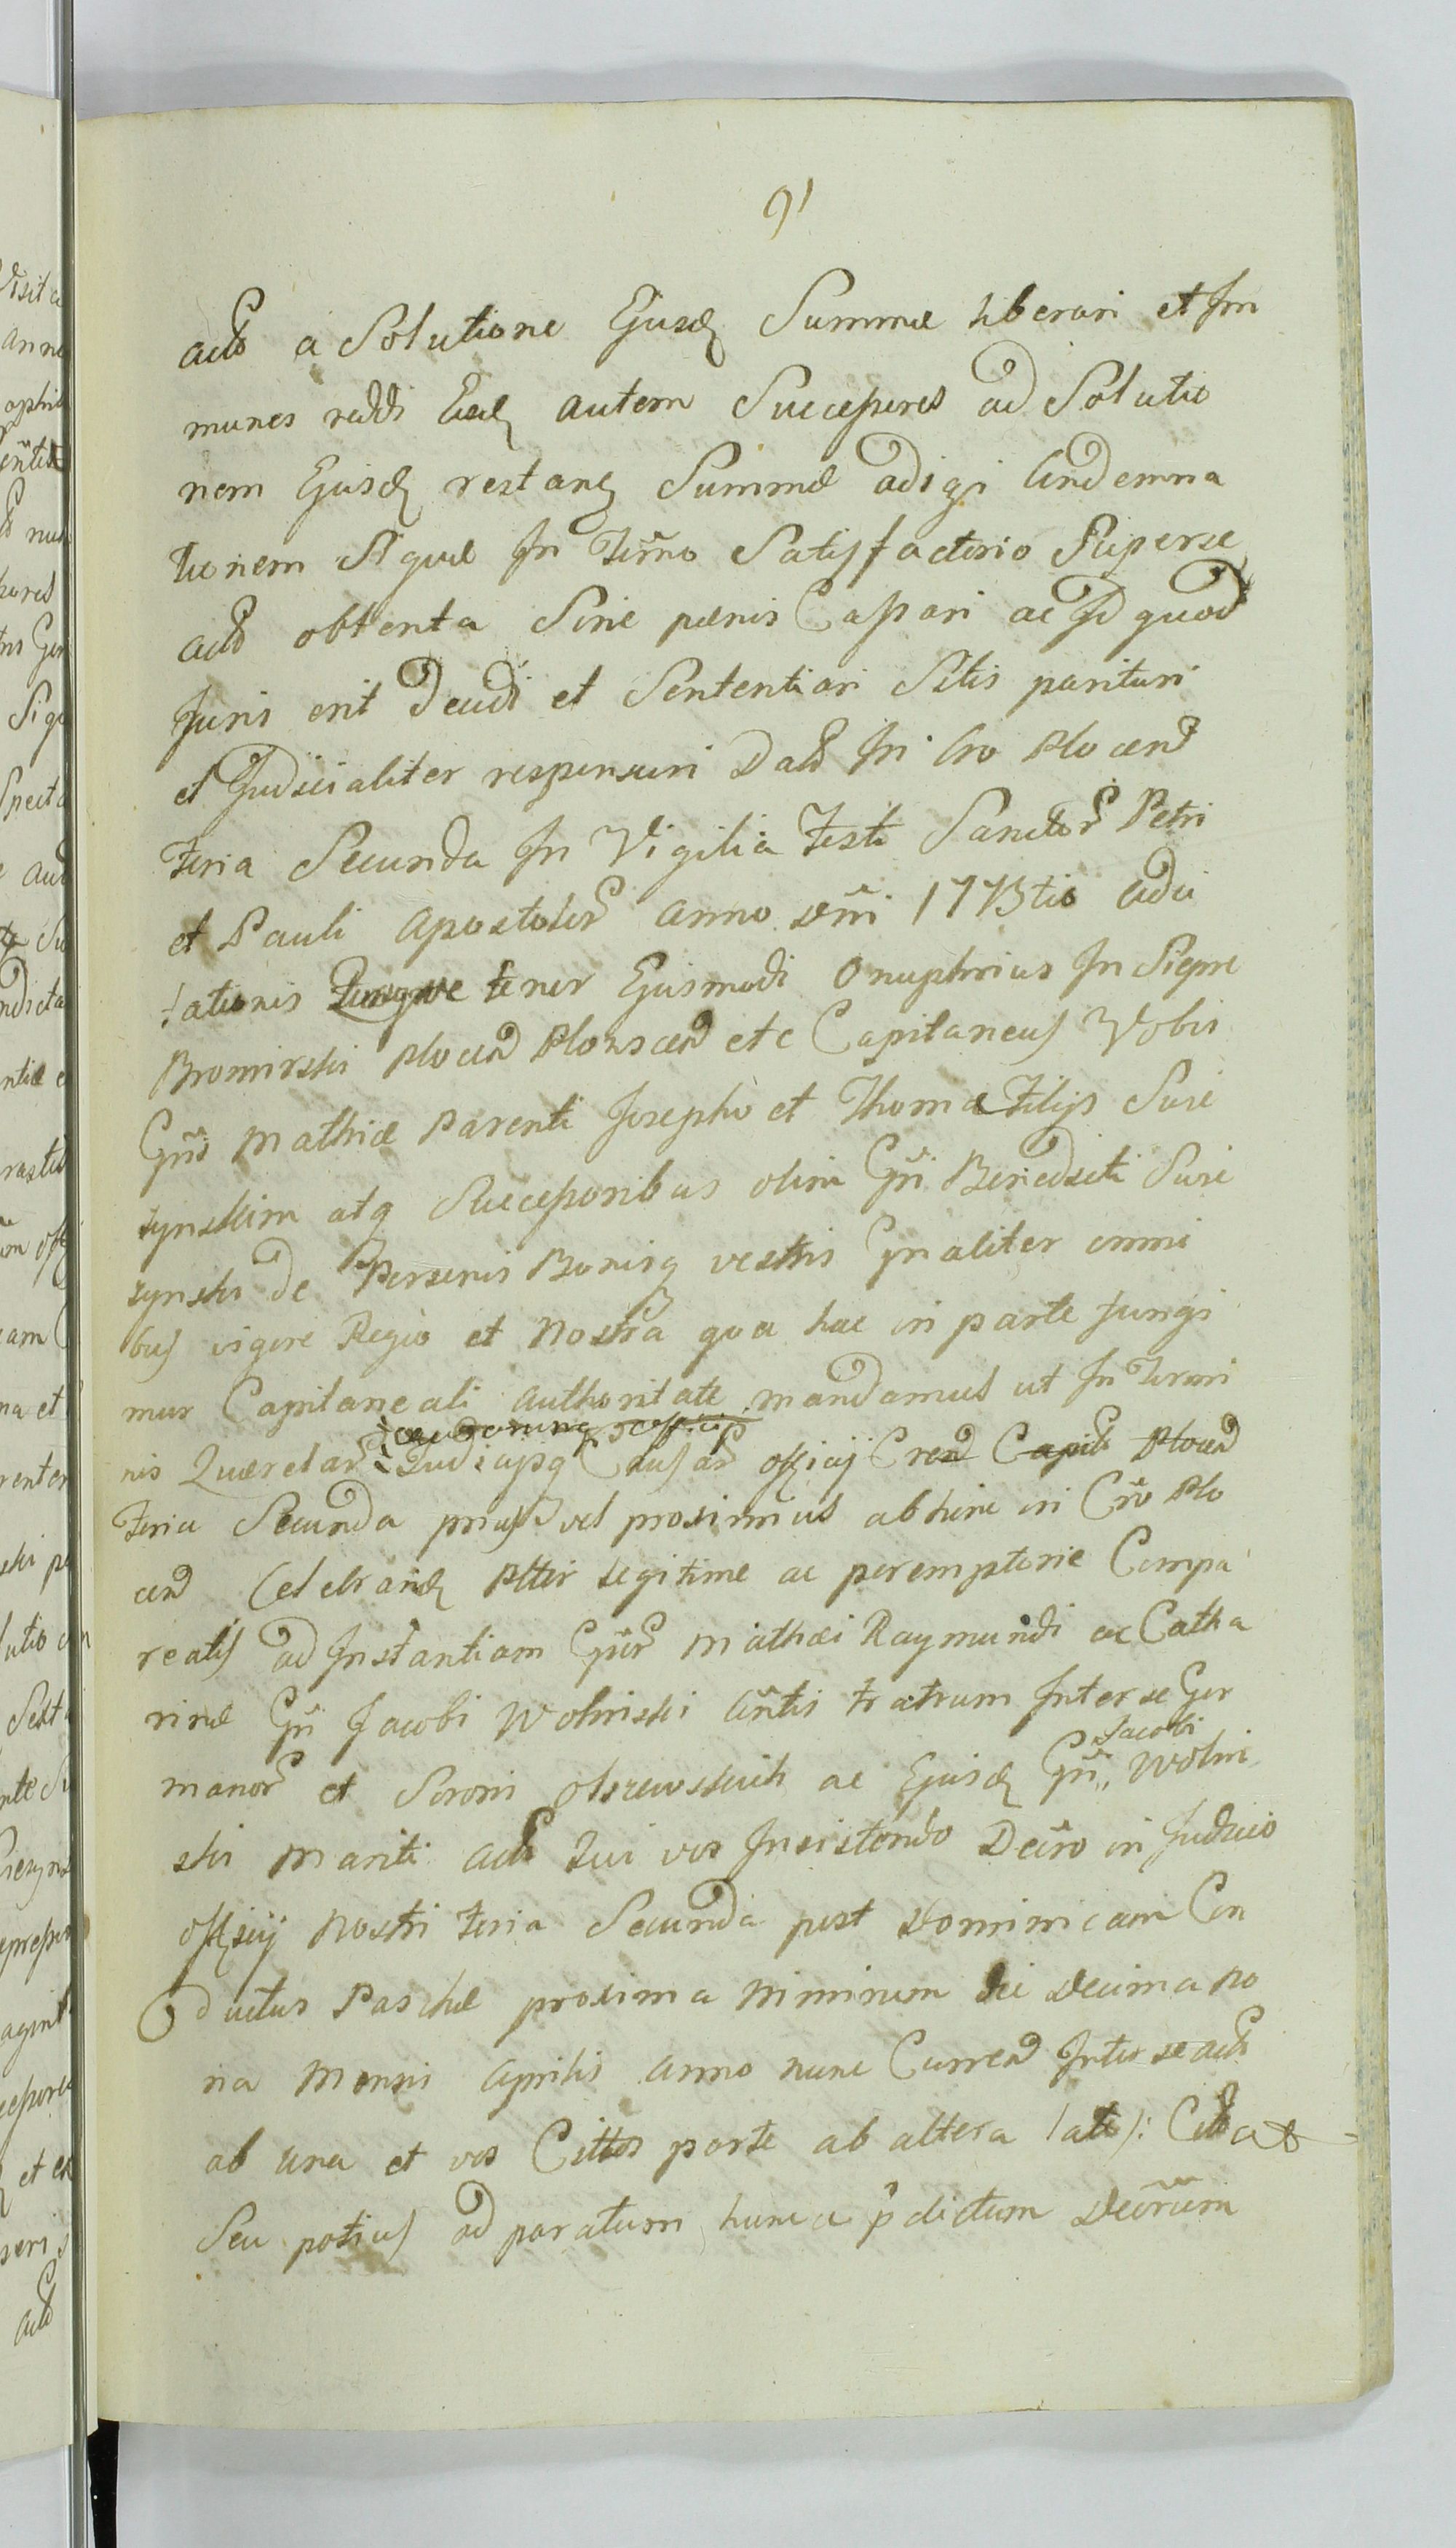 91
actõ a Solutione Ejusdẽ Summæ liberari et Im
munes reddi Eosdẽ autem Successores ad Solutio
nem Ejusdẽ restanẽ Summæ adigi Condemna
tionem Sique In Terño Satisfactorio Superse
actõ obtenta Sine pænis Cassari ac Id quod
Juris erit decidi et Sententiari Sitis parituri
et Judicialiter responsuri Datõ In Cro Plocend
Feria Secunda In Vigilia Festi Sanctorũ Petri
et Pauli Apostolorũ Anno Dñi 1773tio
tationis tenor Ejusmodi Onuphrius In Siepre
Bromirski Plocend Plonscend etc Capitaneus Vobis
Gñis Mathiæ Parenti Josepho et Thomæ Filijs Susi
tynskim atq Successoribus olim Gñi Benedicti Susi
tynski de Personis Bonisq vestris Gnaliter omni
bus vigore Regio et Nostra qua hac in parte fungi
mur Capitaneali Authoritate mandamus ut In Termi
nis Querelarũ Judicijsq Causarũ officij Crend Capitt Plocend
Feria Secunda prius vel proximius abhinc in Crõ Plo
cend Celebrandẽ Plttr legitime ac peremptorie Compa
reatis ad Instantiam Gñrũ Mathæi Raymundi ac Catha
rinæ Gñi Jacobi Wolinski Cñtis Fratrum Inter se Ger
manorũ et Sororis Olszewskich ac Ejusdẽ Gñi Jacobi Wolin
ski Mariti actõ Qui vos Insistendo Decro in Judicio
officij Nostri Feria Secunda post Dominicam Con
ductus Paschæ proxima Nimirum die Decima No
na Mensis Aprilis Anno nunc Currend Inter se actõ
ab una et vos Cittos parte ab altera late): 
Seu potius ad paratum hunc a p̃dictum Decrum